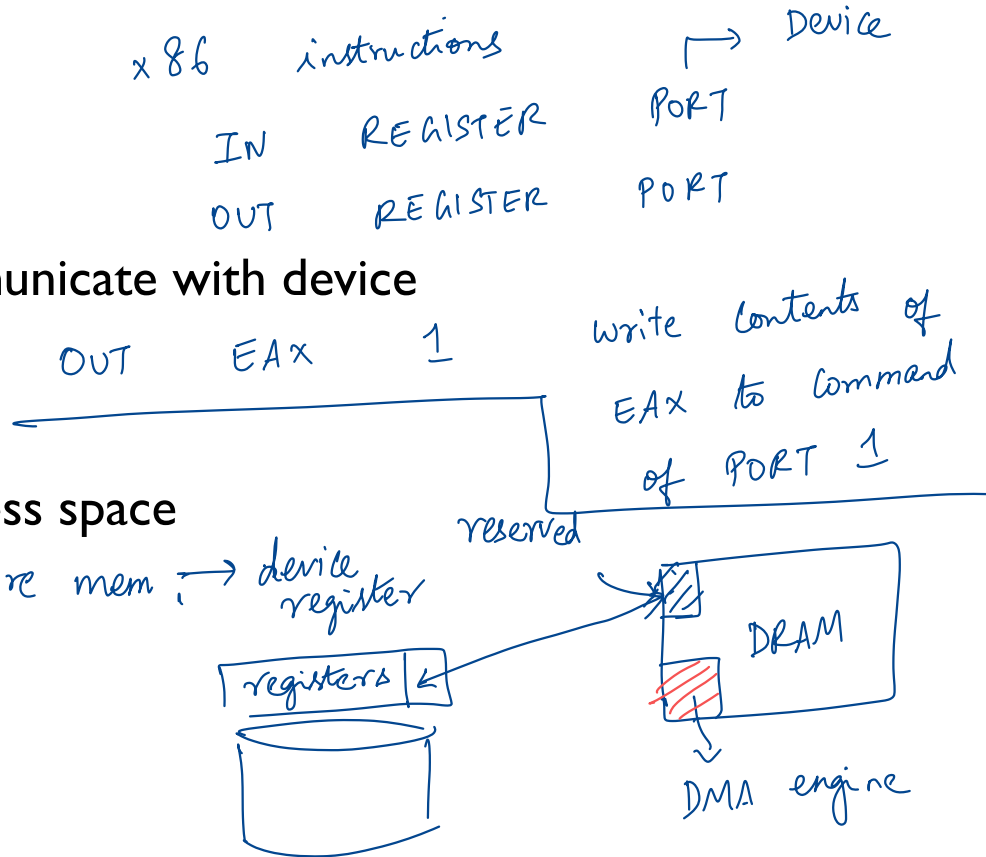 x86 instructions → Device
IN REGISTER PORT
OUT REGISTER PORT
unicate with device
OUT EAX 1
write contents of
EAX to command
of PORT 1
ess space
reserved
re mem → device
register
registers
DRAM
DMA engine